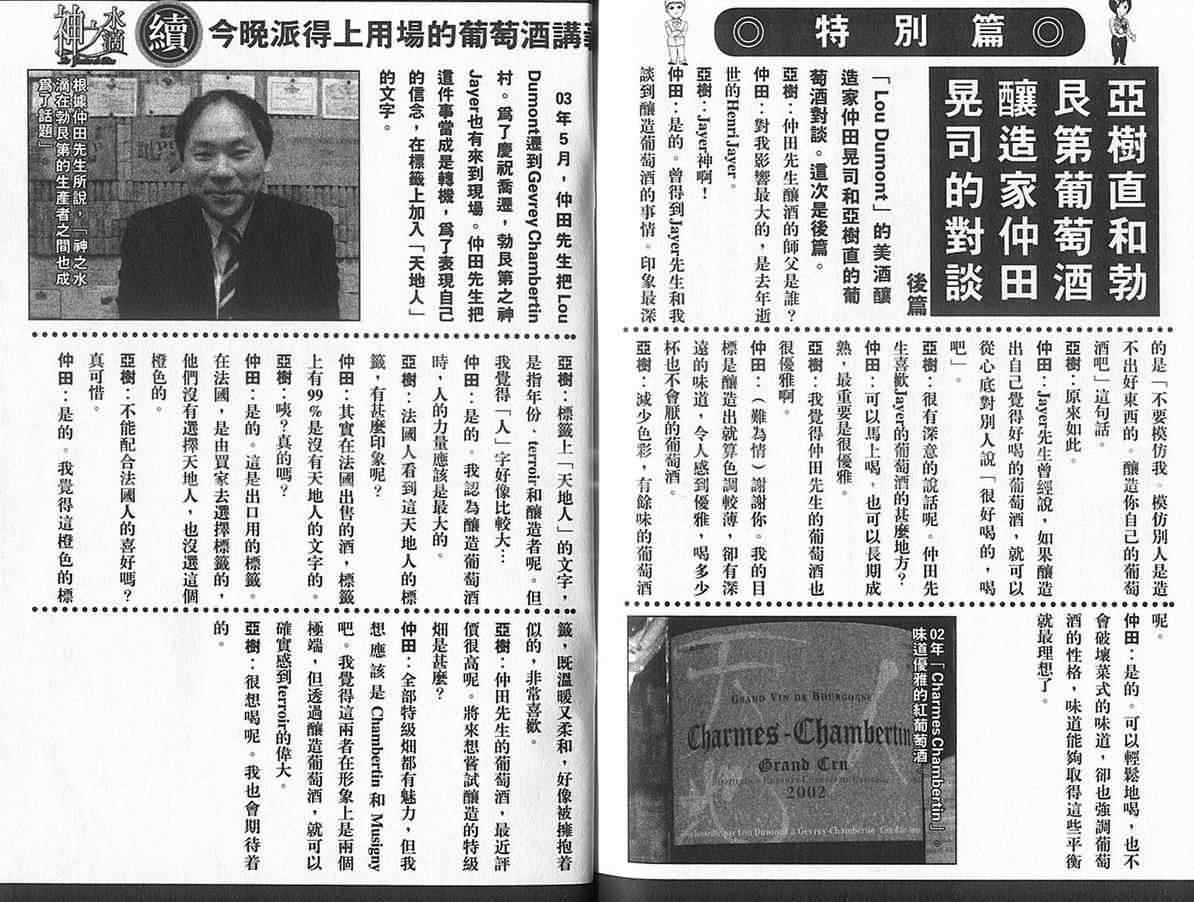 特別篇
亞樹直和勃
艮第葡萄酒
釀造家仲田
晃司的對談
後篇
「Lou Dumont」的美酒釀
造家仲田晃司和亞樹直的葡
萄酒對談。這次是後篇。
亞樹：仲田先生釀酒的師父是誰？
仲田：對我影響最大的，是去年逝
世的Henri Jayer。
亞樹：Jayer神啊！
仲田：是的。曾得到Jayer先生和我
談到釀造葡萄酒的事情。印象最深
的是「不要模仿我。模仿別人是造
不出好東西的。釀造你自己的葡萄
酒吧」這句話。
亞樹：原來如此。
仲田：Jayer先生曾經說，如果釀造
出自己覺得好喝的葡萄酒，就可以
從心底對別人說「很好喝的，喝
吧」。
亞樹：很有深意的說話呢。仲田先
生喜歡Jayer的葡萄酒的甚麼地方？
仲田：可以馬上喝，也可以長期成
熟，最重要是很優雅。
亞樹：我覺得仲田先生的葡萄酒也
很優雅啊。
仲田：（難為情）謝謝你。我的目
標是釀造出就算色調較薄，卻有深
遠的味道，令人感到優雅，喝多少
杯也不會厭的葡萄酒。
亞樹：減少色彩，有餘味的葡萄酒
呢。
仲田：是的。可以輕鬆地喝，也不
會破壞菜式的味道，卻也強調葡萄
酒的性格，味道能夠取得這些平衡
就最理想了。
02年「Charmes Chambertin」。
味道優雅的紅葡萄酒。
天地人
GRAND VIN DE BOURGOGNE
Charmes-Chambertin
Grand Cru
2002
神之水滴
續
今晚派得上用場的葡萄酒講
03年5月，仲田先生把Lou
Dumont遷到Gevrey Chambertin
村。為了慶祝喬遷，勃艮第之神
Jayer也有來到現場。仲田先生把
這件事當成是轉機，為了表現自己
的信念，在標籤上加入「天地人」
的文字。
根據仲田先生所說，「神之水
滴在勃艮第的生產者之間也成
為了話題」。
亞樹：標籤上「天地人」的文字，
是指年份、terroir和釀造者呢。但
我覺得「人」字好像比較大…
仲田：是的。我認為釀造葡萄酒
時，人的力量應該是最大的。
亞樹：法國人看到這天地人的標
籤，有甚麼印象呢？
仲田：其實在法國出售的酒，標籤
上有99%是沒有天地人的文字的。
亞樹：咦？真的嗎？
仲田：是的。這是出口用的標籤。
在法國，是由買家去選擇標籤的，
他們沒有選擇天地人，也沒選這個
橙色的。
亞樹：不能配合法國人的喜好嗎？
真可惜。
仲田：是的。我覺得這橙色的標
籤，既溫暖又柔和，好像被擁抱着
似的，非常喜歡。
亞樹：仲田先生的葡萄酒，最近評
價很高呢。將來想嘗試釀造的特級
畑是甚麼？
仲田：全部特級畑都有魅力，但我
想應該是Chambertin和Musigny
吧。我覺得這兩者在形象上是兩個
極端，但透過釀造葡萄酒，就可以
確實感到terroir的偉大。
亞樹：很想喝呢。我也會期待着
的。